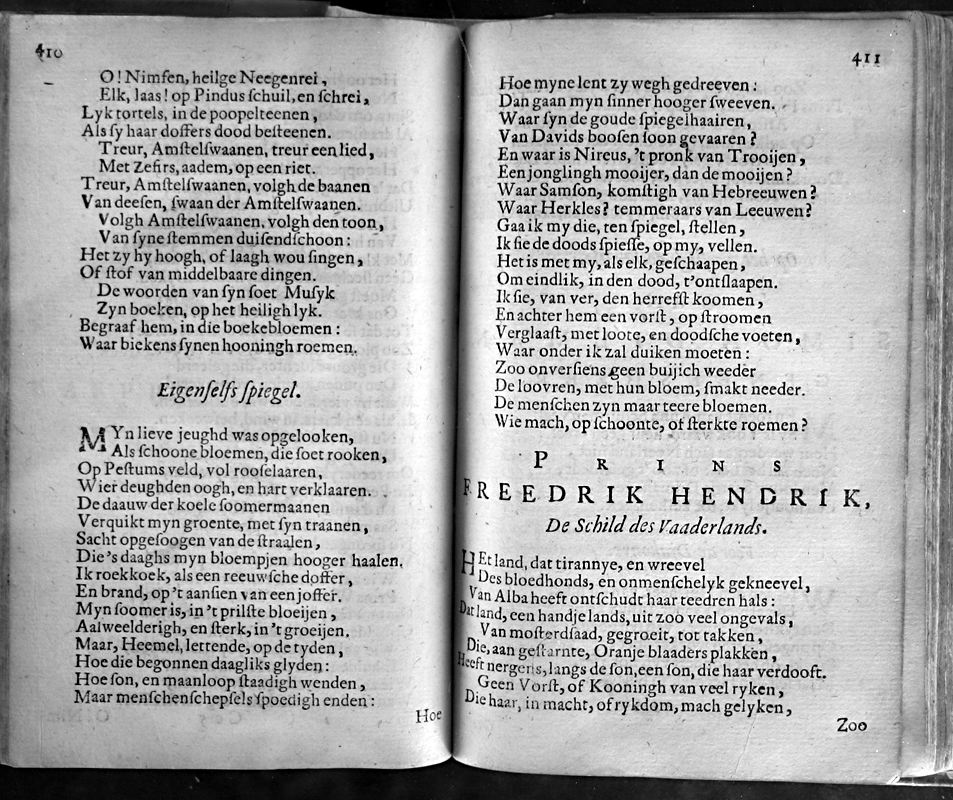 410
O! Nimfen, heilge Neegenrei,
Elk, laas! op Pindus schuil, en schrei,
Lyk tortels, in de poopelteenen,
Als sy haar doffers dood besteenen.
Treur, Amstelswaanen, treur een lied,
Met Zefirs, aadem, op een riet.
Treur, Amstelswaanen, volgh de baanen
Van deesen, swaan der Amstelswaanen.
Volgh Amstelswaanen, volgh den toon,
Van syne stemmen duisendschoon:
Het zy hy hoogh, of laagh wou singen,
Of stof van middelbaare dingen.
De woorden van syn soet Musyk
Zyn boeken, op het heiligh lyk.
Begraaf hem, in die boekebloemen:
Waar biekens synen hooningh roemen.
Eigenselfs spiegel.
MYn lieve jeughd was opgelooken,
Als schoone bloemen, die soet rooken,
Op Pestums veld, vol rooselaaren,
Wier deughden oogh, en hart verklaaren.
De daauw der koele soomermaanen
Verquikt myn groente, met syn traanen,
Sacht opgesoogen van de straalen,
Die 's daaghs myn bloempjen hooger haalen.
Ik roekkoek, als een reeuwsche doffer,
En brand, op 't aansien van een joffer.
Myn soomer is, in 't prilste bloeijen,
Aalweelderigh, en sterk, in 't groeijen.
Maar, Heemel, lettende, op de tyden,
Hoe die begonnen daagliks glyden:
Hoe son, en maanloop staadigh wenden,
Maar menschenschepsels spoedigh enden:
Hoe
411
Hoe myne lent zy wegh gedreeven:
Dan gaan myn sinner hooger sweeven.
Waar syn de goude spiegelhaairen,
Van Davids boosen soon gevaaren?
En waar is Nireus, 't pronk van Trooijen,
Een jonglingh mooijer, dan de mooijen?
Waar Samson, komstigh van Hebreeuwen?
Waar Herkles? temmeraars van Leeuwen?
Gaa ik my die, ten spiegel, stellen,
Ik sie de doods spiesse, op my, vellen.
Het is met my, als elk, geschaapen,
Om eindlik, in den dood, t'ontslaapen.
Ik sie, van ver, den herrefst koomen,
En achter hem een vorst, op stroomen
Verglaast, met loote, en doodsche voeten,
Waar onder ik zal duiken moeten:
Zoo onversiens geen buijich weeder
De loovren, met hun bloem, smakt needer.
De menschen zyn maar teere bloemen.
Wie mach, op schoonte, of sterkte roemen?
PRINS
FREEDRIK HENDRIK,
De Schild des Vaaderlands.
HEt land, dat tirannye, en wreevel
Des bloedhonds, en onmenschelyk gekneevel,
Van Alba heeft ontschudt haar teedren hals:
Dat land, een handje lands, uit zoo veel ongevals,
Van mosterdsaad, gegroeit, tot takken,
Die, aan gestarnte, Oranje blaaders plakken,
Heeft nergens, langs de son, een son, die haar verdooft.
Geen Vorst, of Kooningh van veel ryken,
Die haar, in macht, of rykdom, mach gelyken,
Zoo